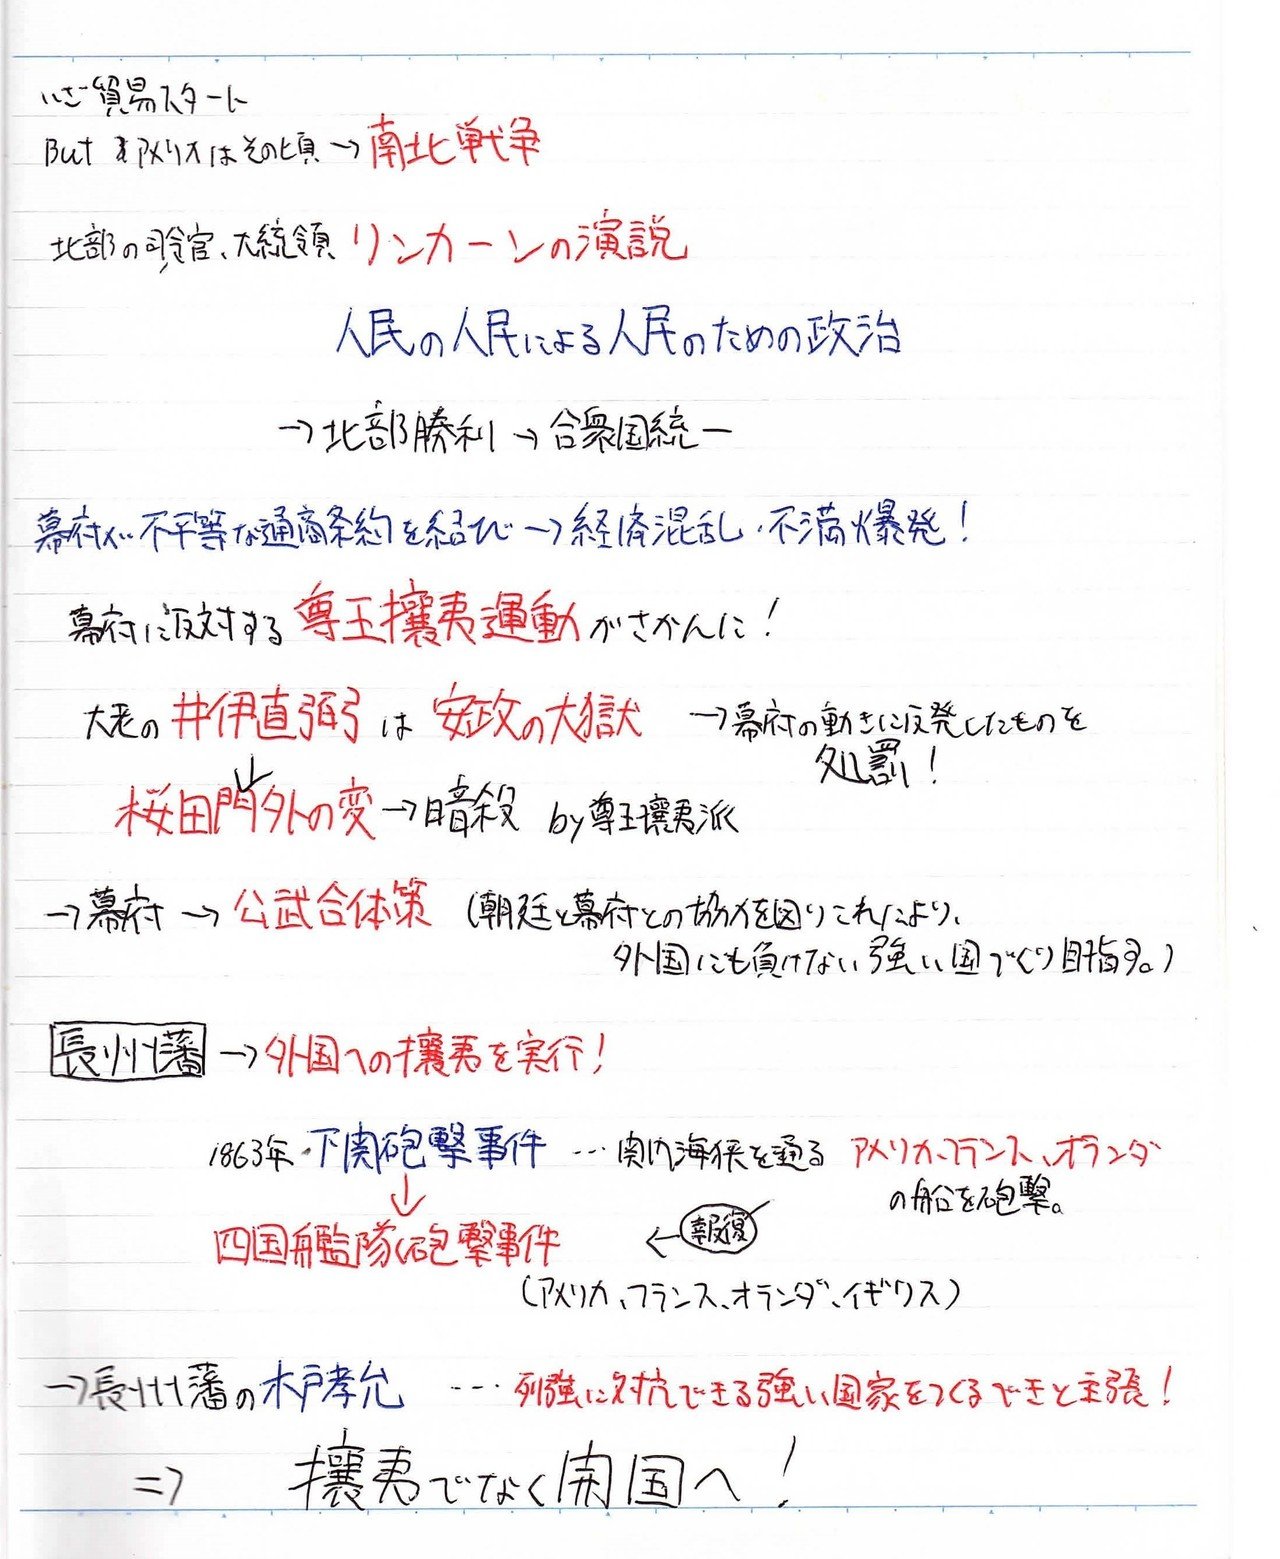 いざ貿易スタート
But アメリカはその頃→南北戦争
北部の司令官、大統領 リンカーンの演説
人民の人民による人民のための政治
→北部勝利→合衆国統一
幕府が不平等な通商条約を結び→経済混乱・不満爆発!
幕府に反対する尊王攘夷運動がさかんに!
大老の井伊直弼は 安政の大獄 →幕府の動きに反発したものを
処罰!
↓
桜田門外の変→暗殺 by尊王攘夷派
→幕府→公武合体策 (朝廷と幕府との協力を図りこれにより、
外国にも負けない強い国づくり目指す。)
長州藩→外国への攘夷を実行!
1863年・下関砲撃事件 …関門海峡を通る アメリカ、フランス、オランダ
の船を砲撃。
↓
四国艦隊砲撃事件 ←報復
(アメリカ、フランス、オランダ、イギリス)
→長州藩の木戸孝允 …. 列強に対抗できる強い国家をつくるできと主張!
⇒ 攘夷でなく開国へ!